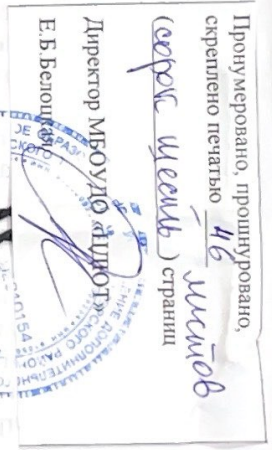 Пронумеровано, прошнуровано,
скреплено печатью 46 листов
(сорок шесть) страниц
Директор МБОУДО
Е.Б.Белоцкая